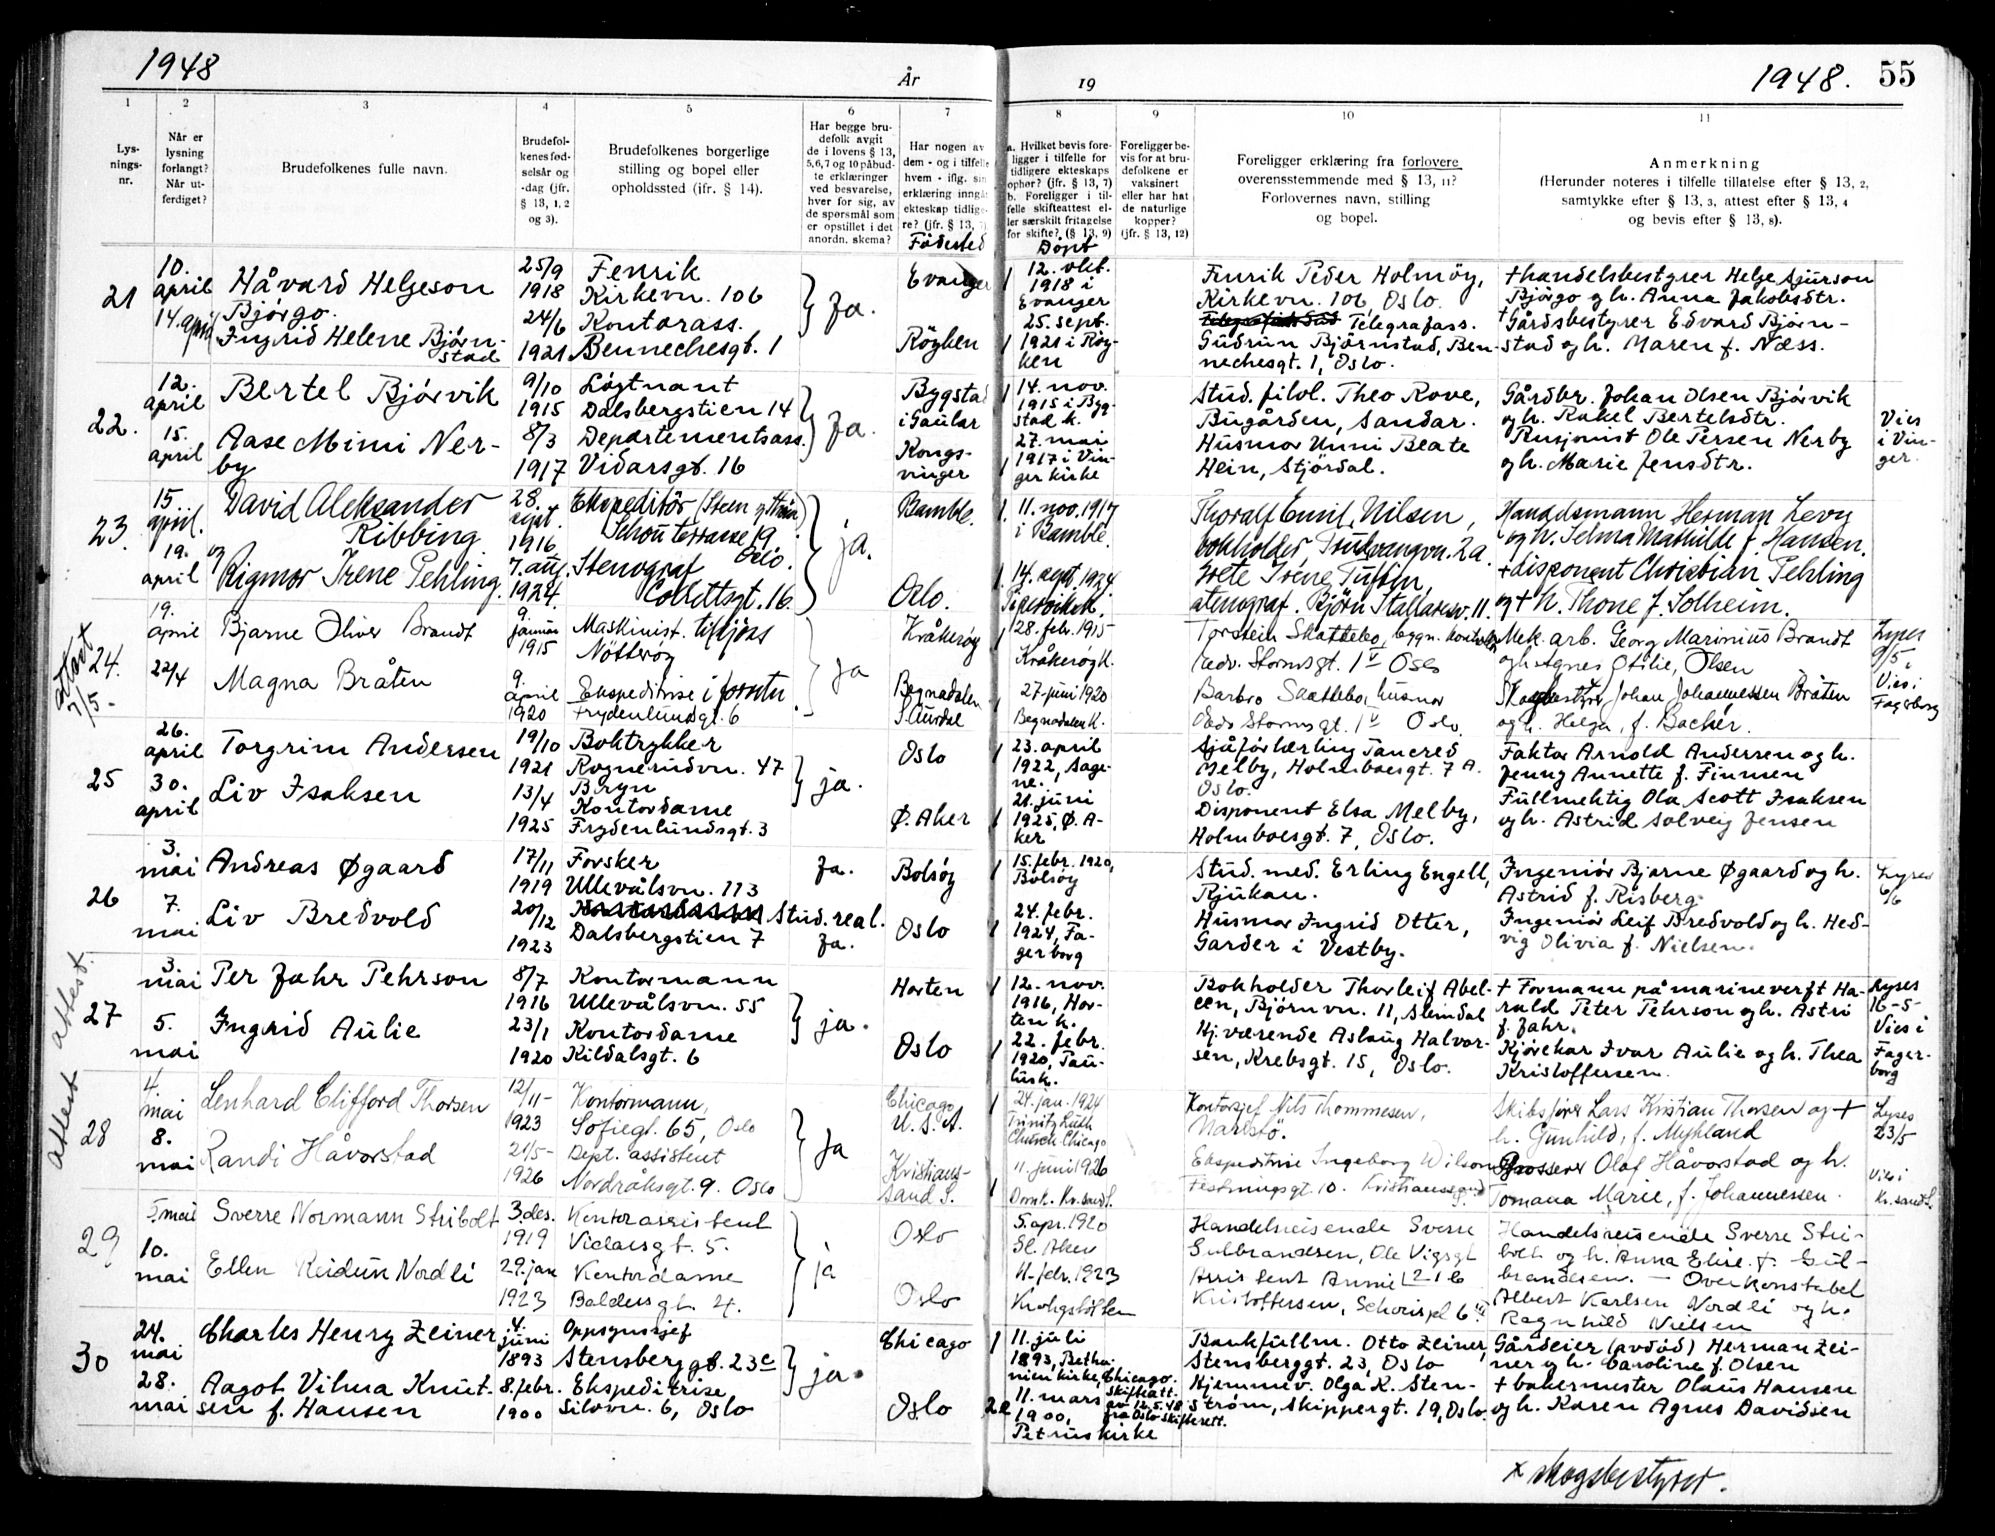 1948
År
19
1948.
55
1
2
3
4
5
6
7
8
9
10
11
Lys-
nings-
nr.
Når er
lysning
forlangt?
Når ut-
ferdiget?
Brudefolkenes fulle navn.
Brudefol-
kenes fød-
selsår og
-dag (jfr.
§ 13, 1, 2
og 3).
Brudefolkenes borgerlige
stilling og bopel eller
opholdssted (ifr. § 14).
Har begge bru-
defolk avgit
de i lovens § 13,
5,6,7 og 10 påbud-
te erklæringer
ved besvarelse,
hver for sig, av
de spørsmål som
er opstillet i det
anordn. skema?
Har nogen av
dem - og i tilfelle
hvem - iflg. sin
erklæring inngått
ekteskap tidlige-
re? (jfr. § 13, 7)
Födested
a. Hvilket bevis fore-
ligger i tilfelle for
tidligere ekteskaps
ophør? (jfr. § 13, 7)
b. Foreligger i til-
felle skifteattest el-
ler særskilt fritagelse
for skifte? (§ 13, 9)
Döpt
Foreligger be-
vis for at bru-
defolkene er
vaksinert
eller har hat
de naturlige
kopper?
(jfr. § 13, 12)
Foreligger erklæring fra forlovere
overensstemmende med § 13, 11?
Forlovernes navn, stilling
og bopel.
Anmerkning
(Herunder noteres i tilfelle tillatelse efter § 13, 2,
samtykke efter § 13, 3, attest efter § 13, 4
og bevis efter § 13, 8).
21
10.
april
14. april
Håvard Helgeson
Bjørgo.
Ingrid Helene Bjørn-
stad
25/9
1918
24/6
1921
Fenrik
Kirkevn. 106
Kontorass.
Bennechesgt. 1
Ja.
Evanger
Röyken
12. okt.
1918 i
Evanger
25. sept.
1921 i Röy-
ken
Fenrik Peder Holmöy,
Kirkevn. 106, Oslo.
Telegrafass.
Gudrun Björnstad, Ben-
nechesgt. 1, Oslo.
+ handelsbestyrer Helge Sjurson
Björgo og h. Anna Jakobsdtr.
+ Gårdsbestyrer Edvard Bjørn-
stad og h. Maren f. Næss.
22.
12.
april
15.
april
Bertel Bjórvik
Aase Mimi Ner-
by
9/10
1915
8/3
1917
Lögtnant
Dalsbergstien 14
Departementsass.
Vidarsgt. 16
Ja.
Bygstad
i Gaular
Kongs-
vinger
14. nov.
1915 i Byg-
stad k.
27. mai
1917 i Vin-
ger kirke
Stud. filol. Theo Rove,
Bugården, Sandar.
Husmor Unni Beate
Hein, Stjördal.
Gårdbr. Johan Olsen Bjórvik
og h. Rakel Bertelsdtr.
Pensjonist Ole Persen Nerby
og h. Marie Jensdtr.
Vies
i Vin-
ger.
23.
15
april.
19.
april
David Aleksander
Ribbing
og
Rigmor Irene Pehling.
28.
sept.
1916
7. aug.
1924.
Ekspeditör (Steen &
Schouterrasse 19
Oslo.
Stenograf
Collettsgt. 16.
ja.
Bamble.
Oslo.
11. nov. 1917
i Bamble.
14. sept 1924.
Thoralf Emil Nilsen,
bokholder, 2a.
Grete Irene
stenograf. Björn Stallaresv. 11.
Handelsmann Herman Levy
og h. Selma Mathilde f. Hansen.
+ disponent Christian Pehling
og + h. Thone f. Solheim.
attest
7/5-
24.
19.
april
22/4
Bjarne Oliver Brandt
Magna Bråten
9.
januar
1915
9.
april
1920
Maskinist. tilsjøss
Nötteröy
Ekspeditrise i forretn.
Frydenlundsgt. 6
Ja
Kråkeröy
Begnadalen
S. Aurdal
28. febr. 1915
Kråkeröy k.
27. juni 1920
Begnadalen k.
Torstein Skattebo,
Edv. Stormsgt. 1 V Oslo
Barbro Skattebo, husmor
Edv. Stormsgt. 1 V Oslo
Mek. arb. Georg Marinius Brandt
og h. Agnes Otilie, Olsen
Skogbestyrer Johan Johannessen Bråten
og h. Helga, f. Backer.
Lyses
9/5,
Vies i
Fagerborg
25
26.
april
30.
april
Torgrim Andersen
Liv Isaksen
19/10
1921
13/4
1925
Boktrykker
Rognerudvn. 47
Bryn
Kontordame
Frydenlundsgt. 3
ja.
Oslo
Ø. Aker
23. april
1922, Sage-
ne.
21. juni
1925, Ø. A-
ker
Sjåførlærling Tancred
Melby, Holmboesgt. 7 A.
Oslo.
Disponent Elsa Melby,
Holmboesgt. 7, Oslo.
Faktor Arnold Andersen og h.
Jenny Annette f. Finmen
Fullmektig Ola Scott Isaksen
og h. Astrid Solveig Jensen
26
3.
mai
7.
mai
Andreas Øgaard
Liv Bredvold
17/11
1919
20/12
1923
Forsker
Ullevålsvn. 113
Stud. real.
Dalsbergstien 7
Ja.
Ja.
Bolsöy
Oslo
15. febr. 1920,
Bolsöy
24. febr.
1924, Fa-
gerborg
Stud. med. Erling Engell,
Rjukan.
Husmor Ingrid Otter,
Garder i Vestby.
Ingeniör Bjarne Øgaard og h.
Astrid f. Risberg.
Ingeniör Leif Bredvold og h. Hed-
vig Olivia f. Nielsen.
Lyses
6/6
attest
27
3.
mai
5.
mai
Per Jahr Pehrson
Ingrid Aulie
8/7
1916
23/1
1920
Kontormann
Ullevålsvn. 55
Kontordame
Kildalsgt. 6
ja.
Horten
Oslo
12. nov.
1916, Hor-
ten k.
22. febr.
1920, Pau-
lusk.
Bokholder Thorleif Abel-
sen, Bjørnvn. 11, Slemdal
Hj.værende Aslaug Halvor-
sen, Krebsgt. 15, Oslo.
+ Formann på marineverft Ha-
rald Peter Pehrson og h. Astri
f. Jahr.
Kjörekar Ivar Aulie og h. Thea
Kristoffersen.
Lyses
16-5-
Vies i
Fager-
borg
attest
28
4.
mai
8.
mai
Lenhard Clifford Thorsen
Randi Håvorstad
12/11-
1923
21/5-
1926
Kontormann,
Sofiegt. 65, Oslo
Dept. assistent
Nordråksgt. 9. Oslo
Ja
Chicago
U.S.A.
Kristian-
sand S.
24. jan. 1924
Trinity Luth
Church Chicago
11. juni 1926
Domk. Kr.sand S.
Kontorsjef Nils Thommesen,
Narlstö.
Ekspeditrise Ingeborg Wilson
Festningsgt. 10. Kristianssand S.
Skibsfører Lars Kristian Thorsen og +
h. Gunhild, f. Mykland
Grosserer Olaf Håvorstad og h.
Tomana Marie, f. Johannessen.
Lyses
23/5
Vies i
Kr.sand S.
29
5. mai
10.
mai
Sverre Normann Stribolt
Ellen Reidun Nordli
3. des.
1919
29. jan
1923
Kontorassistent
Vidarsgt. 5.
Kontordame
Baldersgt. 4.
ja
Oslo
Oslo
5. apr. 1920
Gl. Aker
11. febr. 1923
Krohgstötten
Handelsreisende Sverre
Gulbrandsen, Ole Vigsgt
21 b
Assistent Annie
Kristoffersen, Schweigpl 6
Handelsreisende Sverre Stri-
bolt og h. Anna Elise f. Gul-
brandsen. - Overkonstabel
Albert Karlsen Nordli og h.
Ragnhild Nielsen
30
24.
mai
28.
mai
Charles Henry Zeiner
Aagot Vilma Knut-
sen f. Hansen
4.
juni
1893
8. febr.
1900
Oppsynssjef
Stensberggt. 23 c
Ekspeditrise
Silovn. 6, Oslo
ja.
Chicago
Oslo
11. juli
1893, Betha-
nien kirke, Chicago.
Skifteatt.
av 12.5.48
fra Oslo skifterett.
11. mars
1900,
Petrus kirke
Bankfullm. Otto Zeiner,
Stensberggt. 23, Oslo
Hjemmev. Olga K. Sten-
ström, Skippergt. 19, Oslo.
Gårdeier (avdød) Herman Zei-
ner og h. Caroline f. Olsen
+ bakermester Olaus Hansen
og h. Karen Agnes Davidsen
x skogsbestyrer.